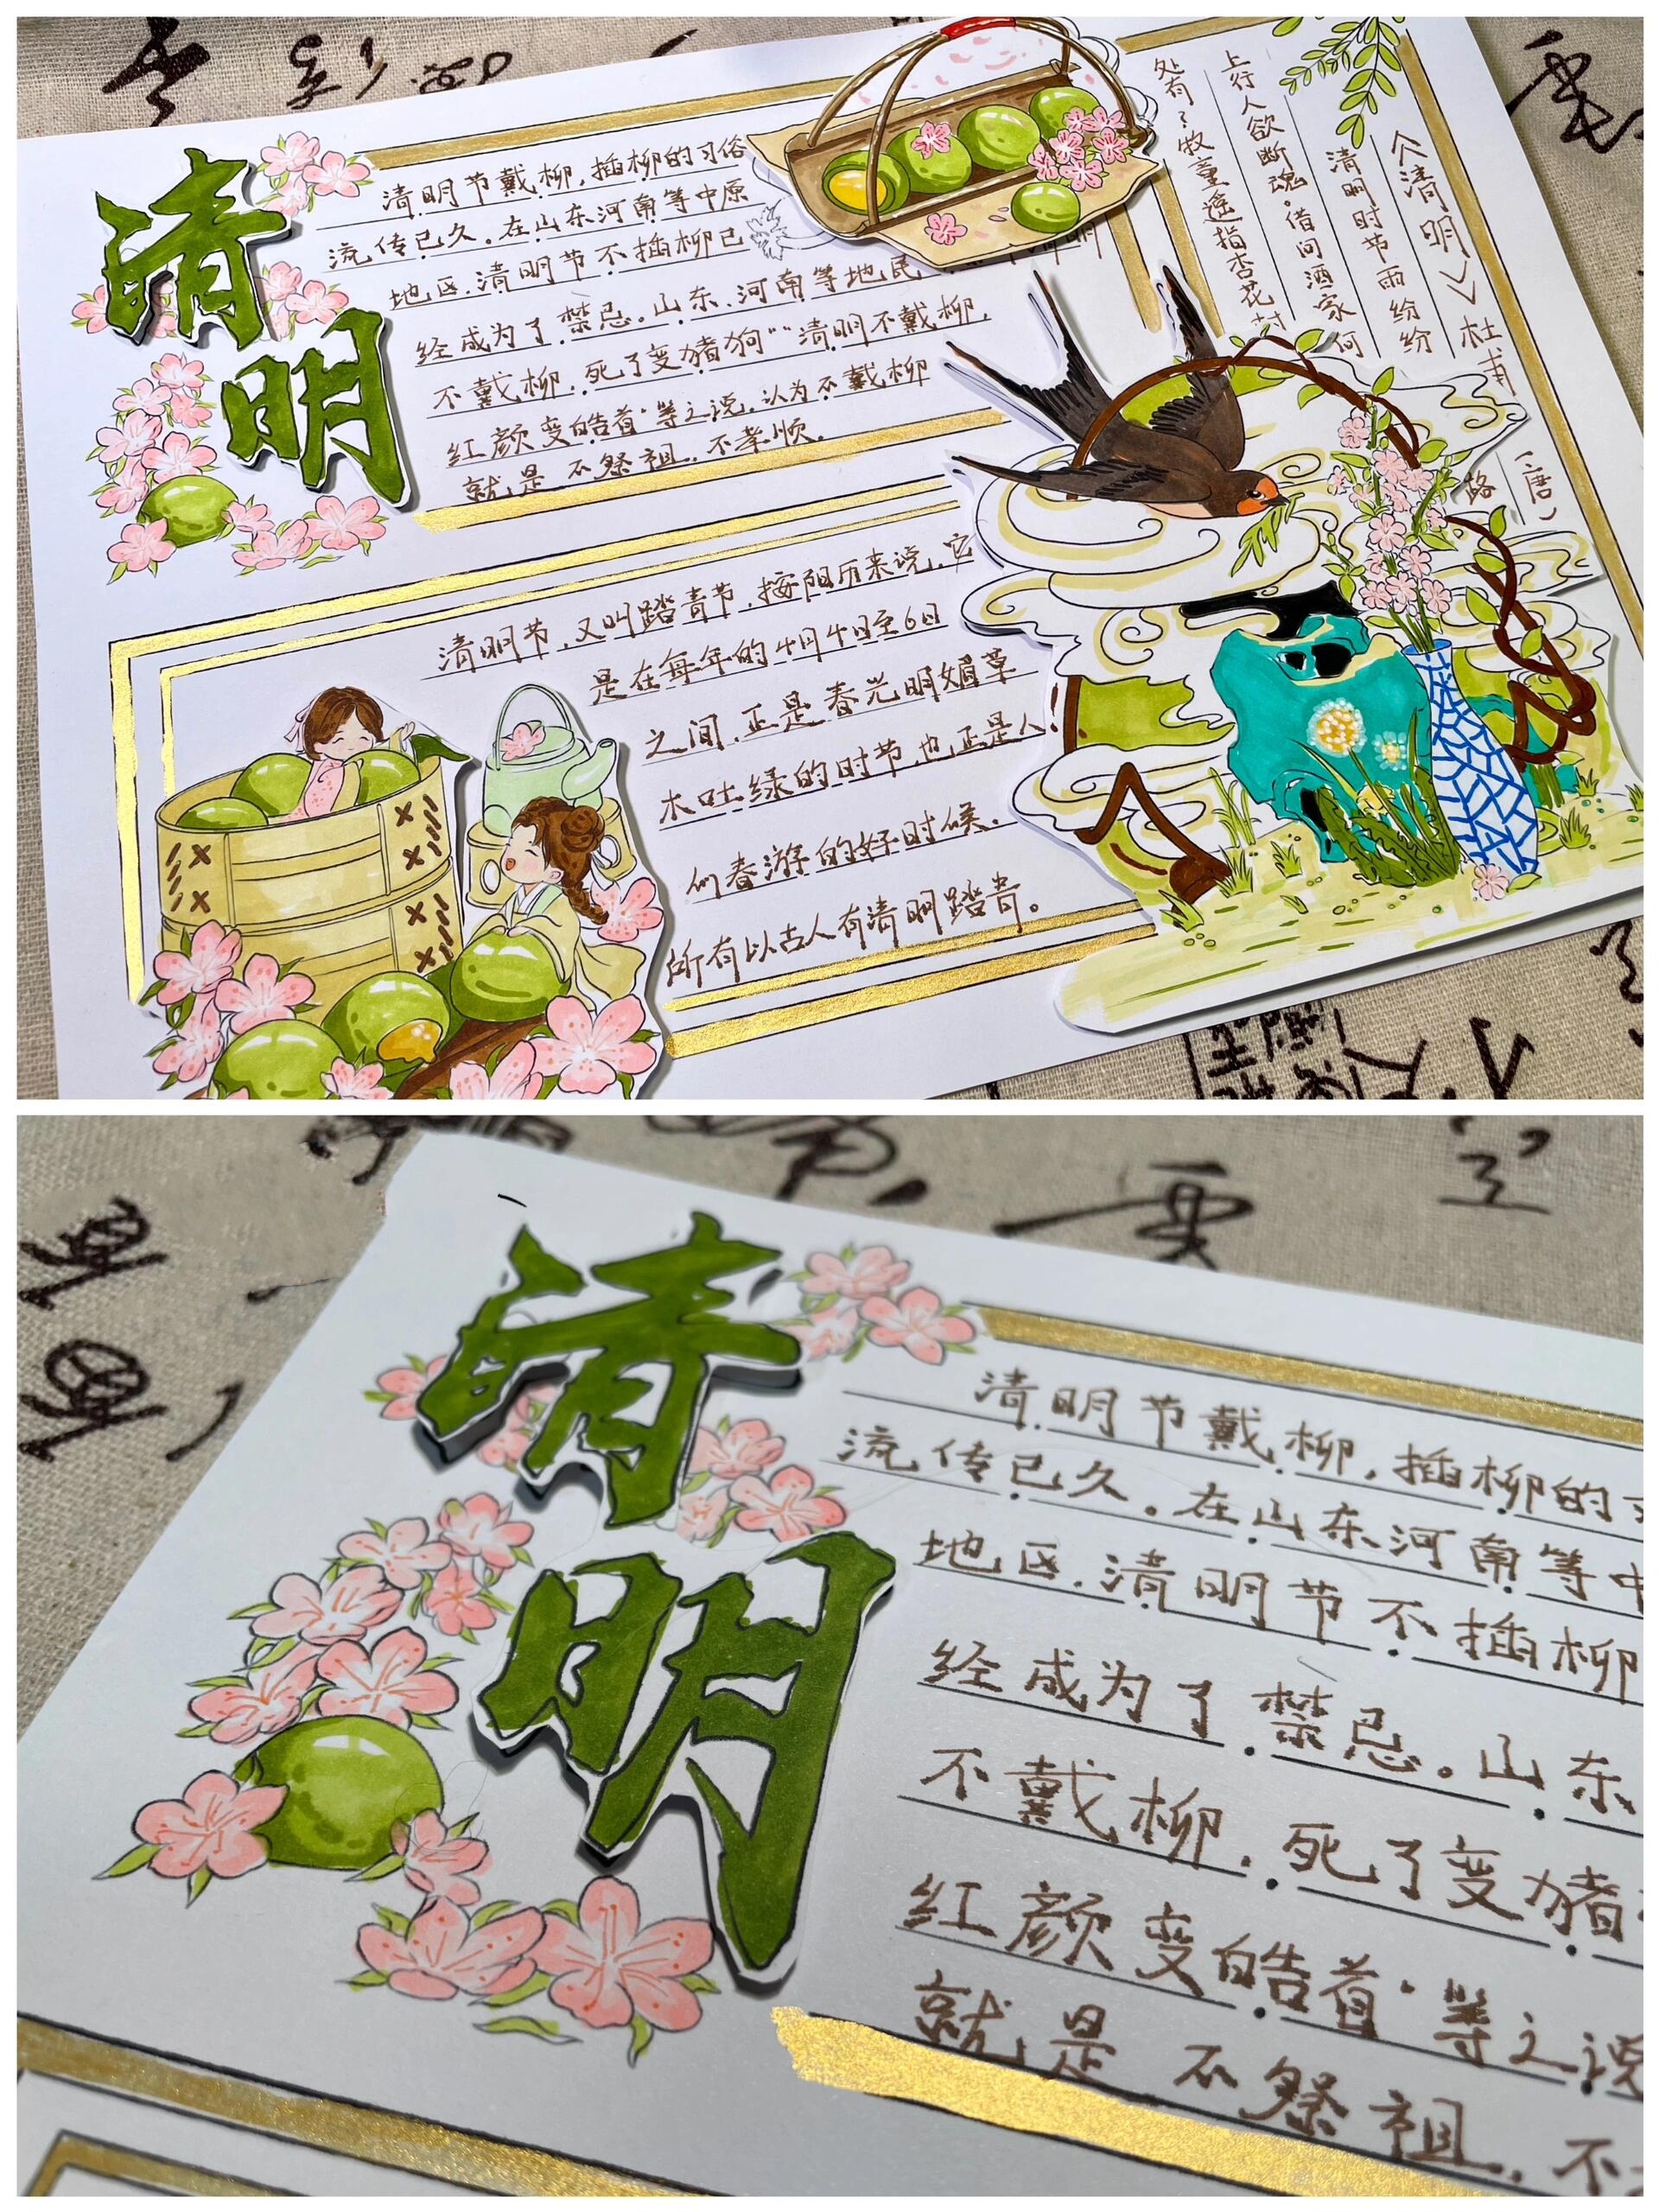 清
明
清明节戴柳,插柳的习俗
流传已久。在山东河南等中原
地区.清明节不插柳已
经成为了禁忌。山东、河南等地民
不戴柳.死了变猪狗""清明不戴柳,
红颜变皓首"等之说.认为不戴柳
就是不祭祖.不孝顺。
清明节.又叫踏青节.按阳历来说.它
是在每年的4月4日至6日
之间.正是春光明媚草
木吐绿的时节.也正是人
们春游的好时候.
所有以古人有清明踏青。
<清明>杜甫
(唐)
清明时节雨纷纷
路
上行人欲断魂。借问酒家何
处有?牧童遥指杏花村
清
明
清明节戴柳,插柳的
流传已久。在山东河南等中
地区.清明节不插柳
经成为了禁忌。山东
不戴柳.死了变猪
红颜变皓首"等之说
就是不祭祖.不